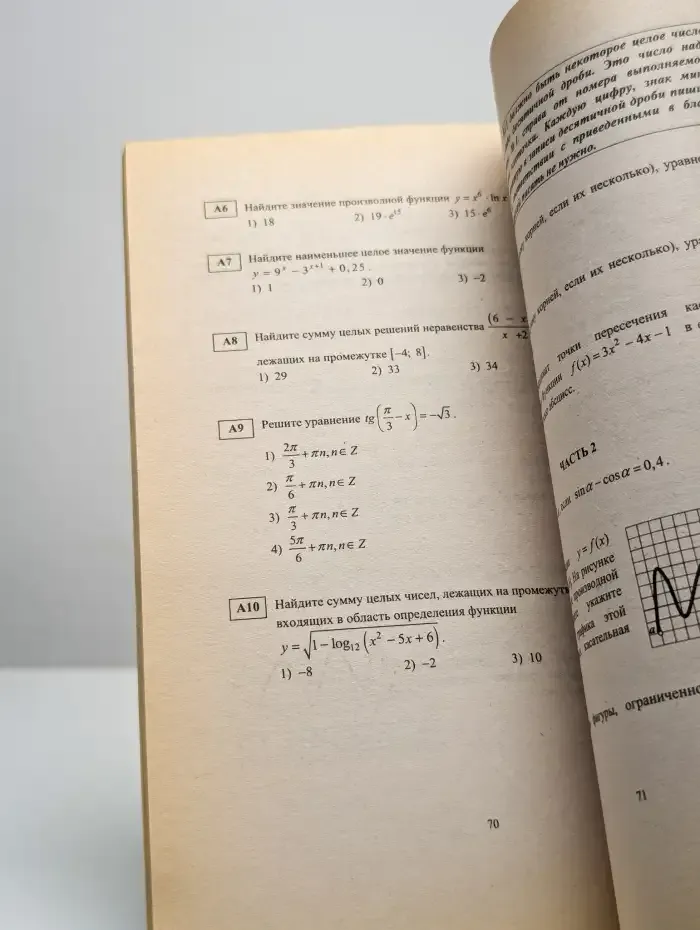 А6 Найдите значение производной функции y = x⁶ · ln x
1) 18 2) 19·e¹⁵ 3) 15·e⁶
А7 Найдите наименьшее целое значение функции
y = 9ˣ − 3ˣ⁺¹ + 0,25 .
1) 1 2) 0 3) −2
А8 Найдите сумму целых решений неравенства (6 − x / x +2
лежащих на промежутке [−4; 8].
1) 29 2) 33 3) 34
А9 Решите уравнение tg(π/3 − x) = −√3 .
1) 2π/3 + πn, n∈ Z
2) π/6 + πn, n∈ Z
3) π/3 + πn, n∈ Z
4) 5π/6 + πn, n∈ Z
А10 Найдите сумму целых чисел, лежащих на промежут
входящих в область определения функции
y = √(1 − log₁₂ (x² − 5x + 6)) .
1) −8 2) −2 3) 10
70
быть некоторое целое число
десятичной дроби. Это число над
справа от номера выполняемо
Каждую цифру, знак мин
в записи десятичной дроби пиши
с приведенными в бла
писать не нужно.
корней, если их несколько), уравне
корней, если их несколько), ура
точки пересечения ка
f(x) = 3x² − 4x − 1 в
абсцисс.
ЧАСТЬ 2
sinα − cosα = 0,4 .
y = f(x)
На рисунке
производной
укажите
графика этой
касательная
фигуры, ограниченно
71